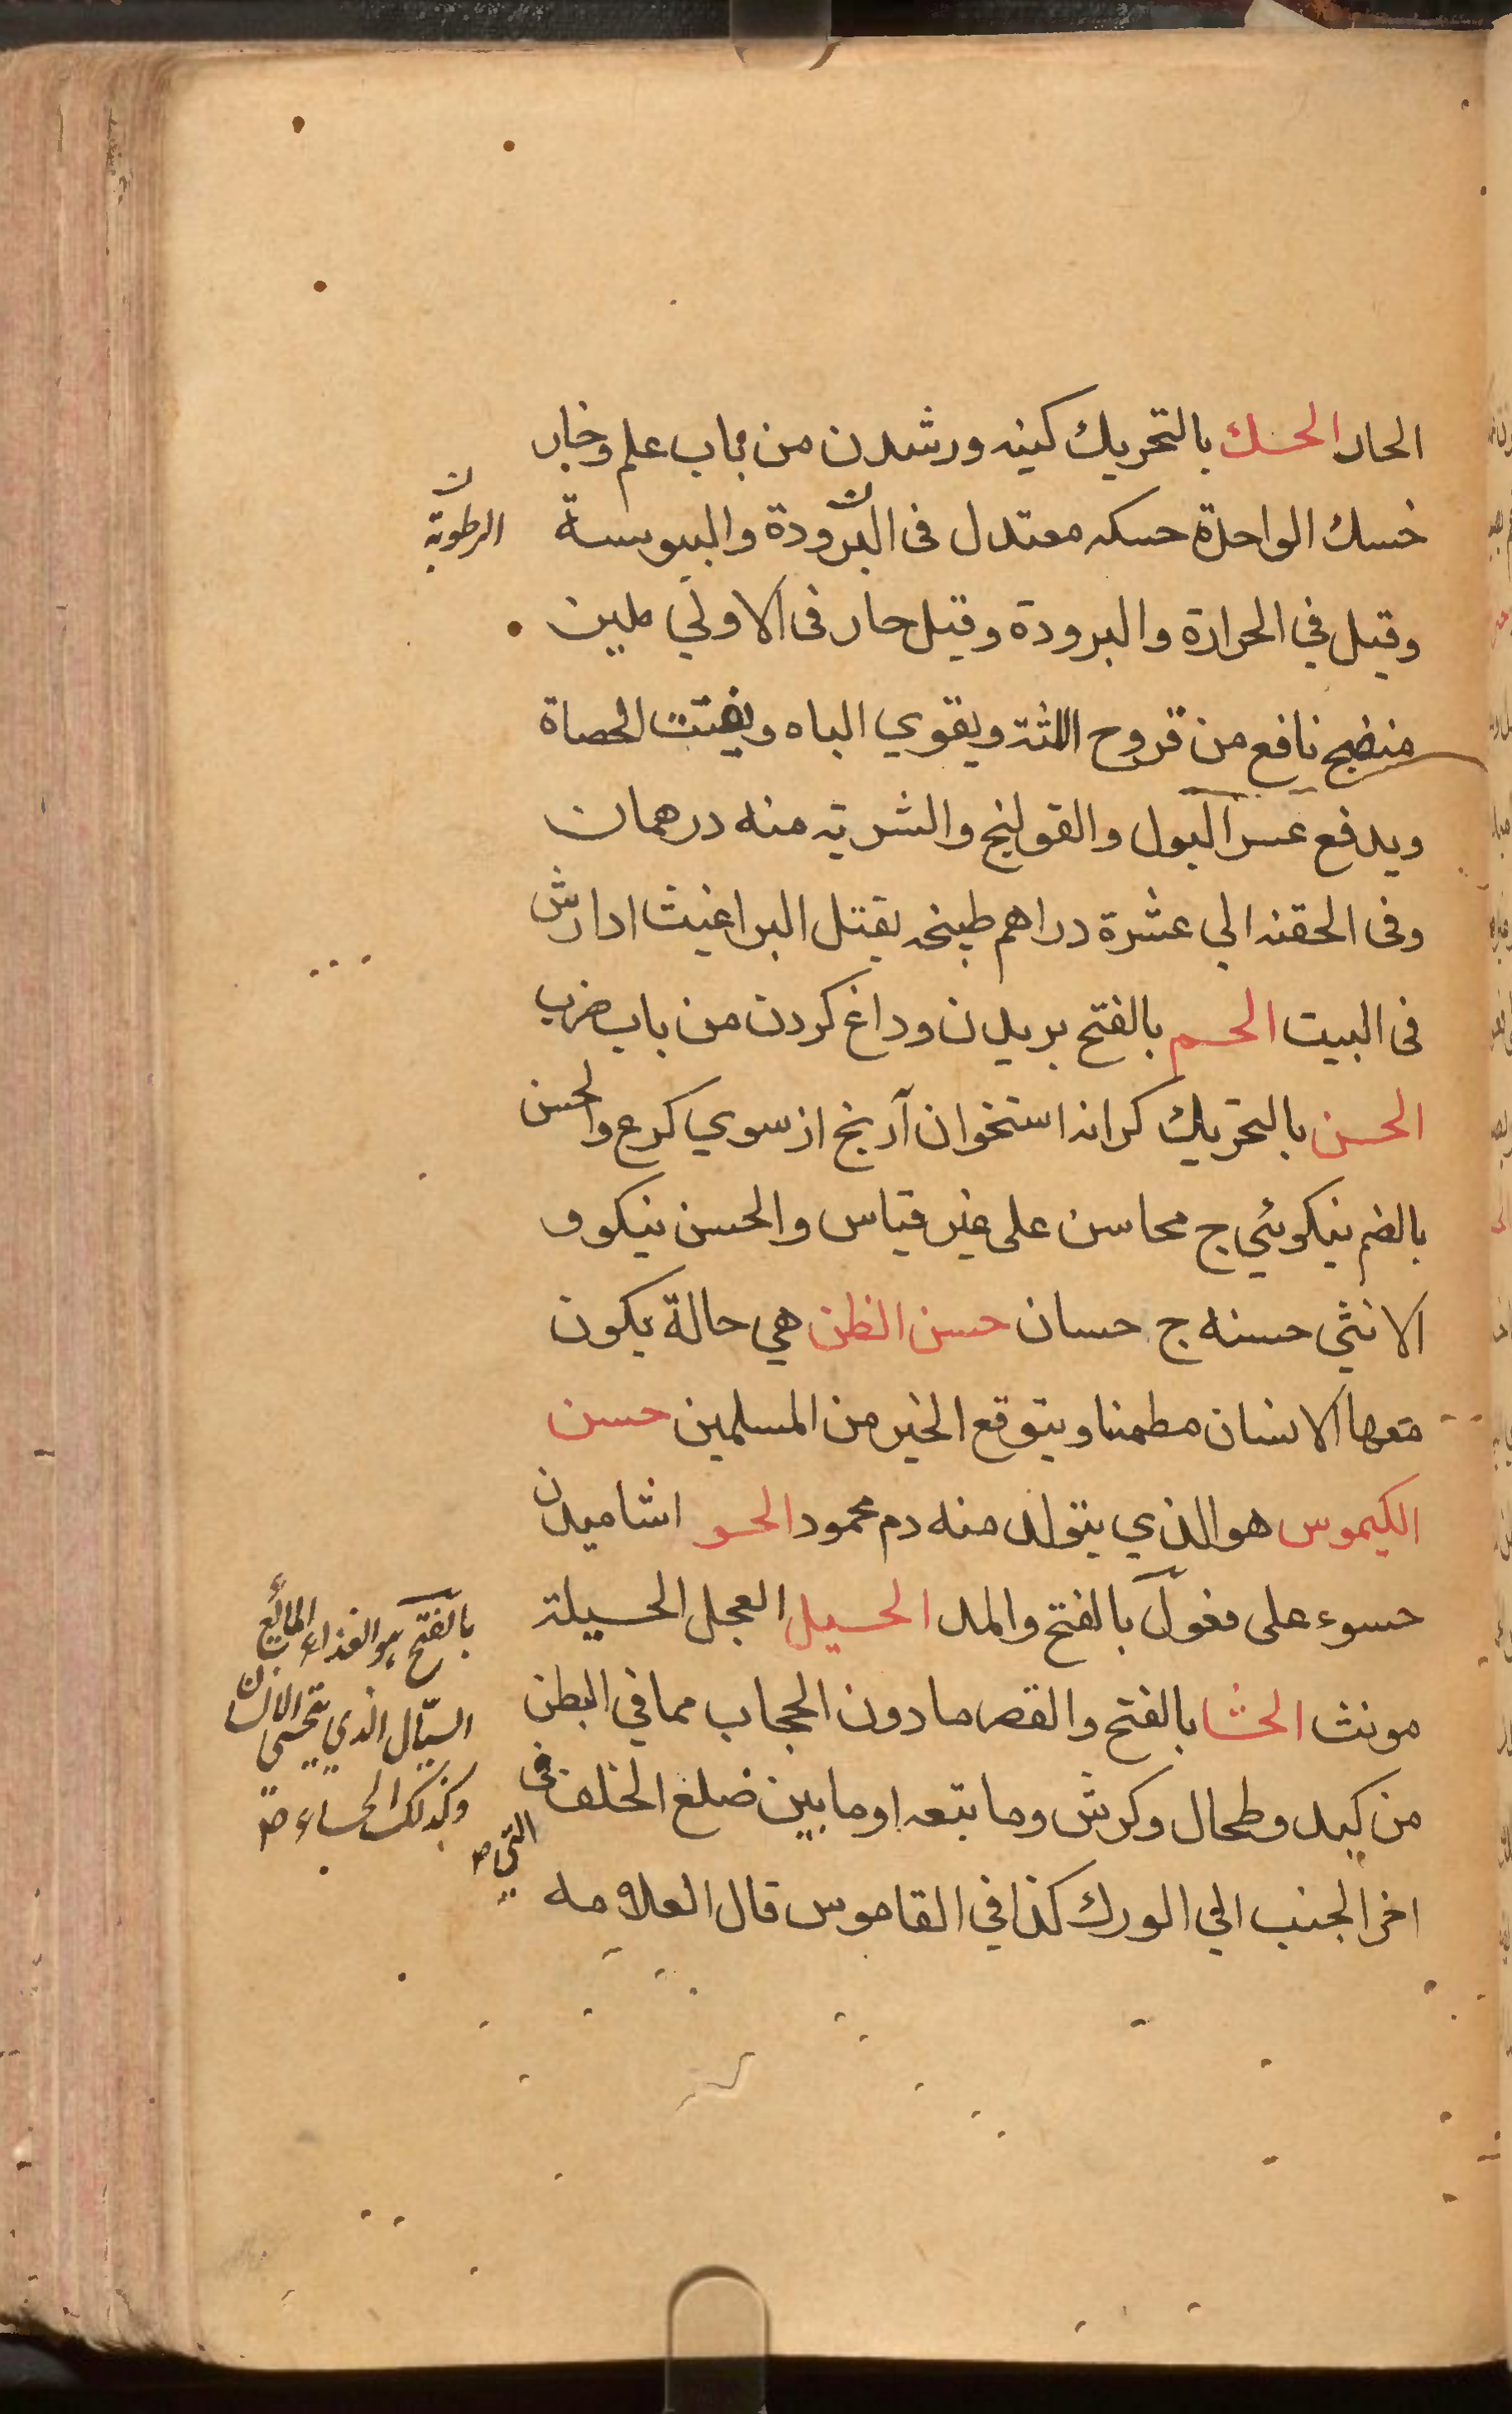 الحار الحسك بالتحريك كينه ورشدن من باب علم وخار
خسك الواحدة حسكه معتدل فى البرودة واليبوسة
الرطوبة ن
وقيل في الحرارة والبرودة وقيل حار فى الاولي ملين
منضج نافع من قروح اللثة ويقوي الباه ويفتت الحصاة
ويدفع عسر البول والقولنج والشربة منه درهمان
وفى الحقنه الي عشرة دراهم طبيخه يقتل البراغيث اذا رش
فى البيت الحسم بالفتح بريدن وداغ كردن من باب ضرب
الحسن بالتحريك كرانه استخوان آرنج از سوي كرع والحسن
بالضم نيكوئي ج محاسن على غير قياس والحسن نيكو و
الانثي حسنه ج حسان حسن الظن هي حالة يكون
معها الانسان مطمنا ويتوقع الخير من المسلمين حسن
الكيموس هو الذي يتولد منه دم محمود الحسو اشاميدن
حسوء على فعول بالفتح والمد الحسيل العجل الحسيلة
مونث الحشا بالفتح والقصر ما دون الحجاب مما في البطن
من كبد وطحال وكرش وما تبعه او ما بين ضلع الخلف فى
اخر الجنب الي الورك كذا في القاموس قال العلامه
بالفتح هو الغذاء المائع
السيال الذي يتحسي الانسان
وكذلك الحساء صح
التي صح